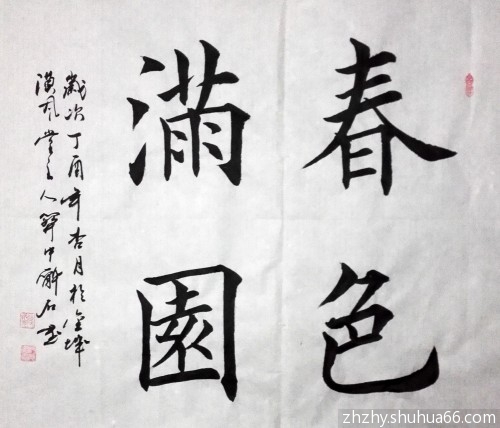 春色
滿園
歲次丁酉年杏月於金城
漢風堂主人
zhzhy.shuhua66.com